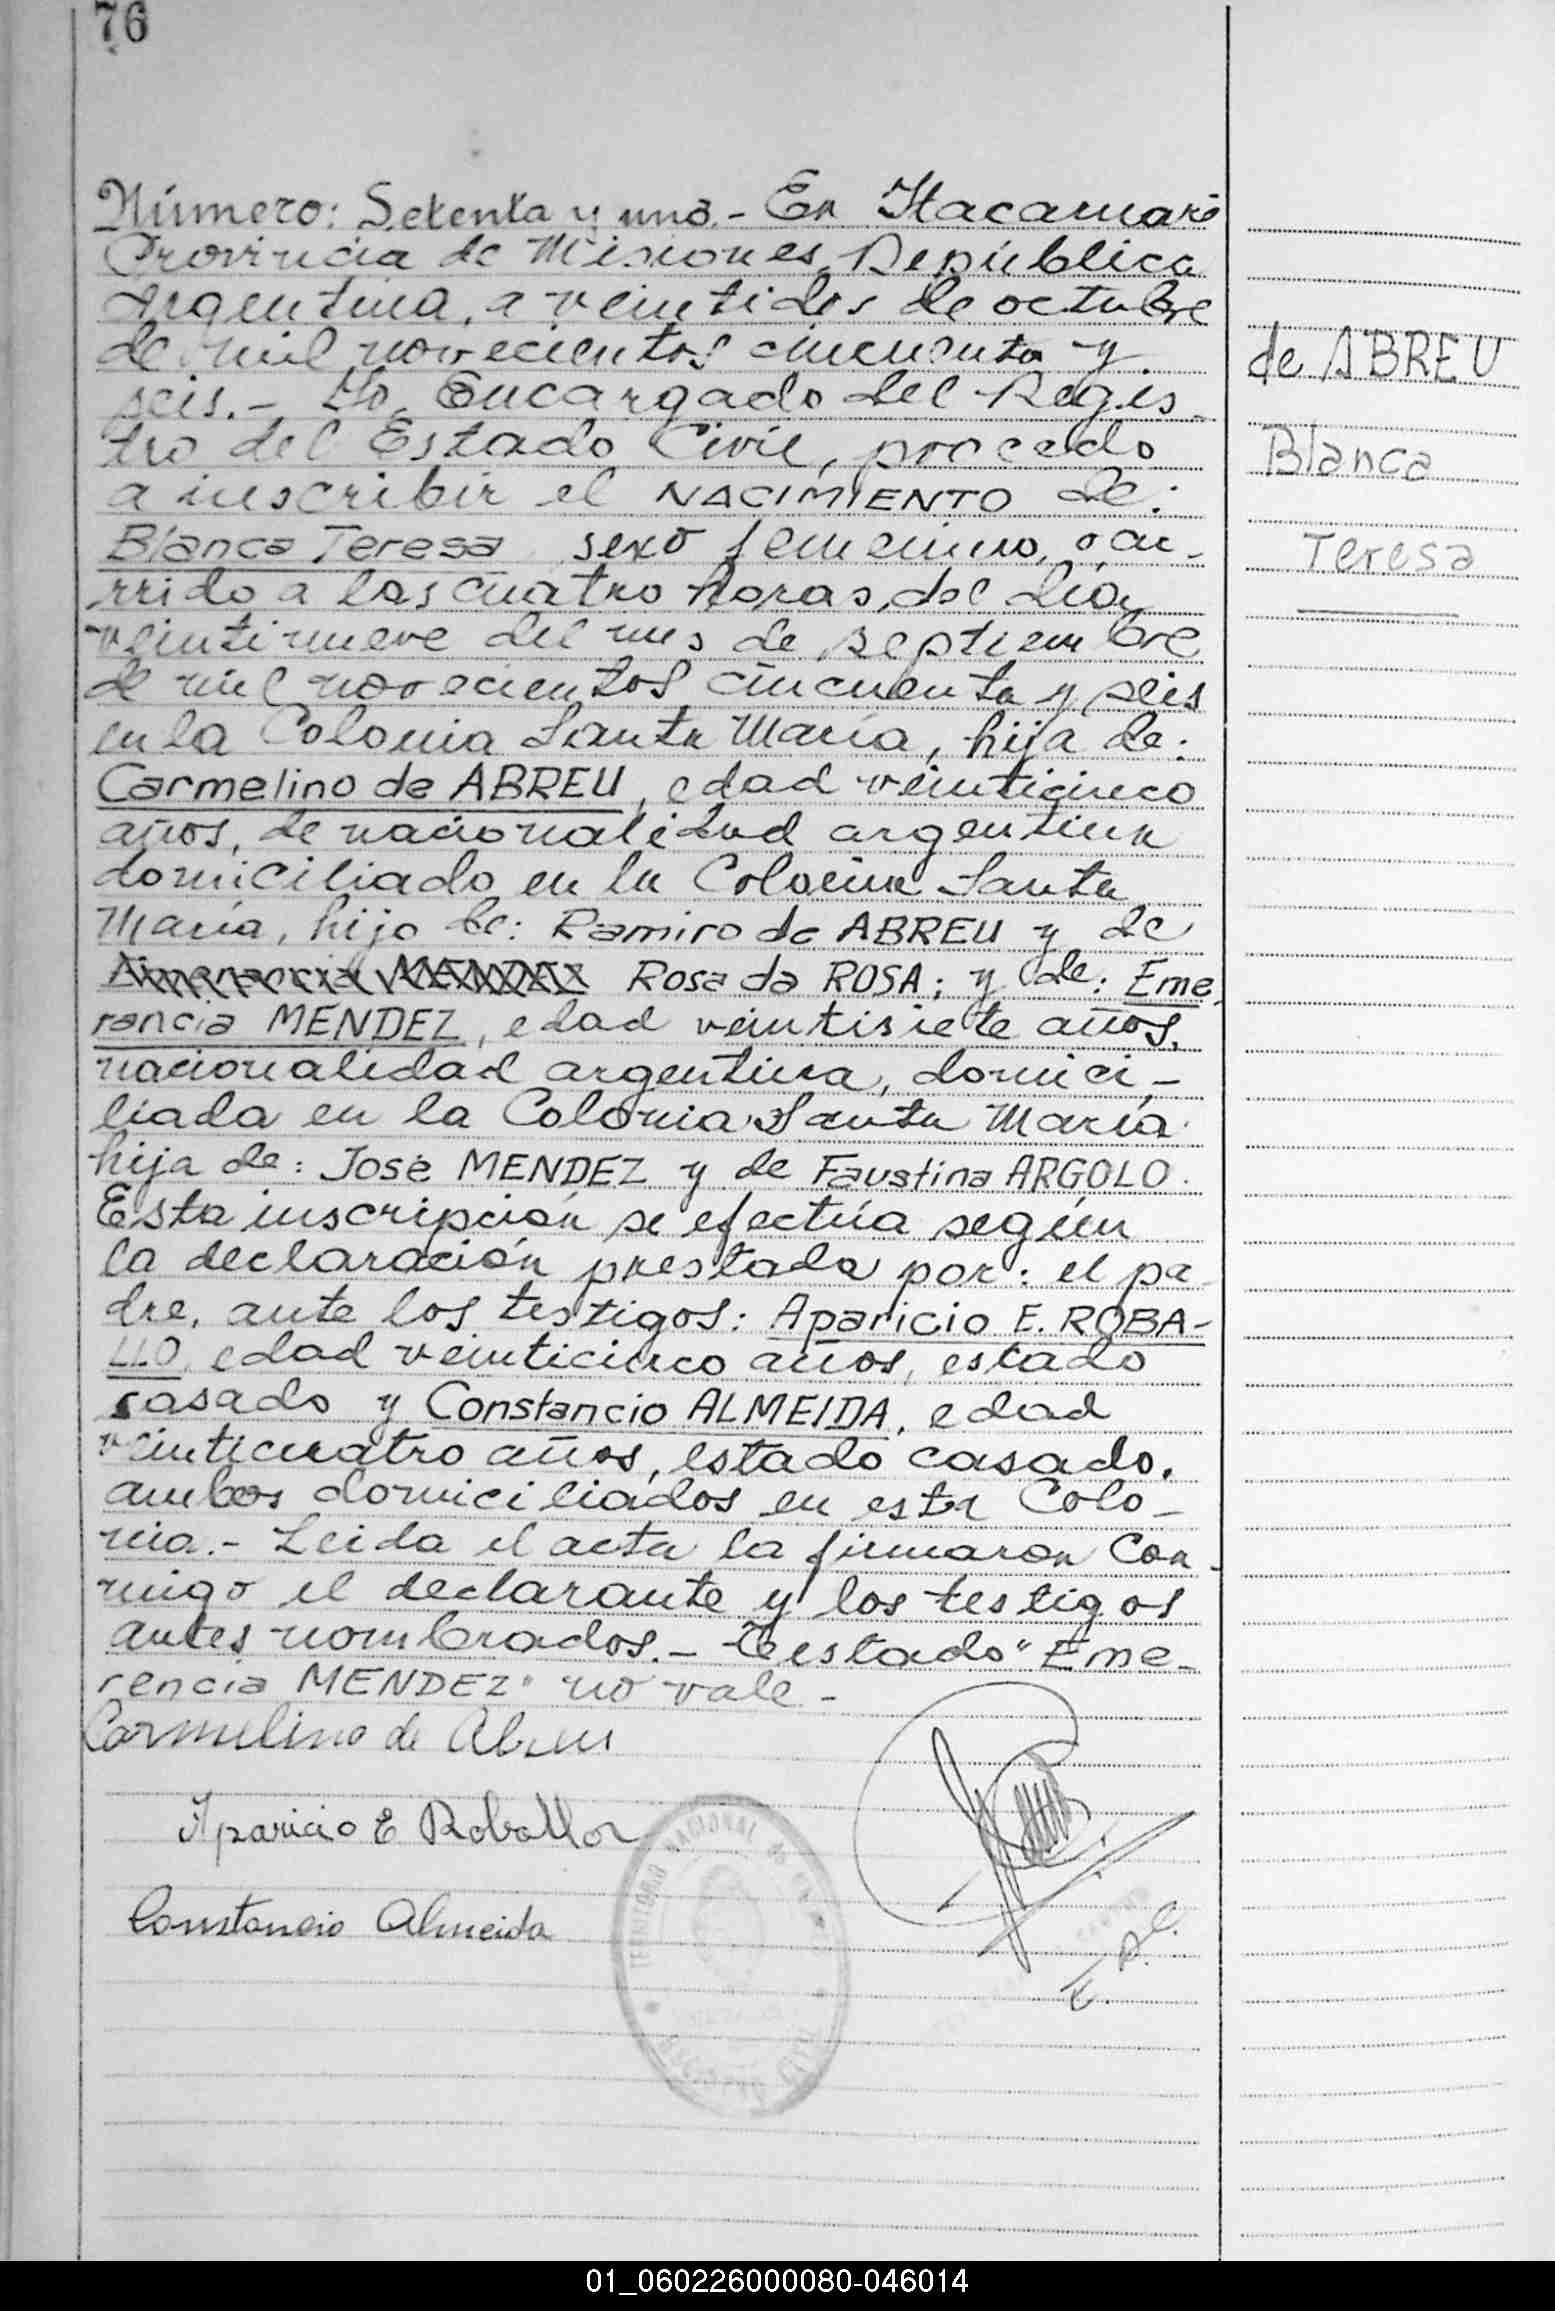 76
Número: Setenta y uno.- En Itacaruaré
Provincia de Misiones, República
Argentina, a veintidos de octubre
de mil novecientos cincuenta y
seis.- Yo, Encargado del Regis-
tro del Estado Civil, procedo
a inscribir el NACIMIENTO de:
Blanca Teresa, sexo femenino, ocu-
rrido a las cuatro horas, del día
veintinueve del mes de septiembre
de mil novecientos cincuenta y seis
en la Colonia Santa María, hija de:
Carmelino de ABREU, edad veinticinco
años, de nacionalidad argentina
domiciliado en la Colonia Santa
María, hijo de: Ramiro de ABREU y de
Rosa da ROSA; y de: Eme
rencia MENDEZ, edad veintisiete años,
nacionalidad argentina, domici-
liada en la Colonia Santa María
hija de: José MENDEZ y de Faustina ARGOLO.
Esta inscripción se efectúa según
la declaración prestada por: el pa-
dre, ante los testigos: Aparicio E. ROBA-
LLO, edad veinticinco años, estado
casado y Constancio ALMEIDA, edad
veinticuatro años, estado casado,
ambos domiciliados en esta Colo-
nia.- Leida el acta la firmaron con-
migo el declarante y los testigos
antes nombrados.- Testado "Eme-
rencia MENDEZ" no vale-
Carmelino de Abreu
Aparicio E Roballo
Constancio Almeida
TERRITORIO NACIONAL de
E. R. C.
de ABREU
Blanca
Teresa
01_060226000080-046014